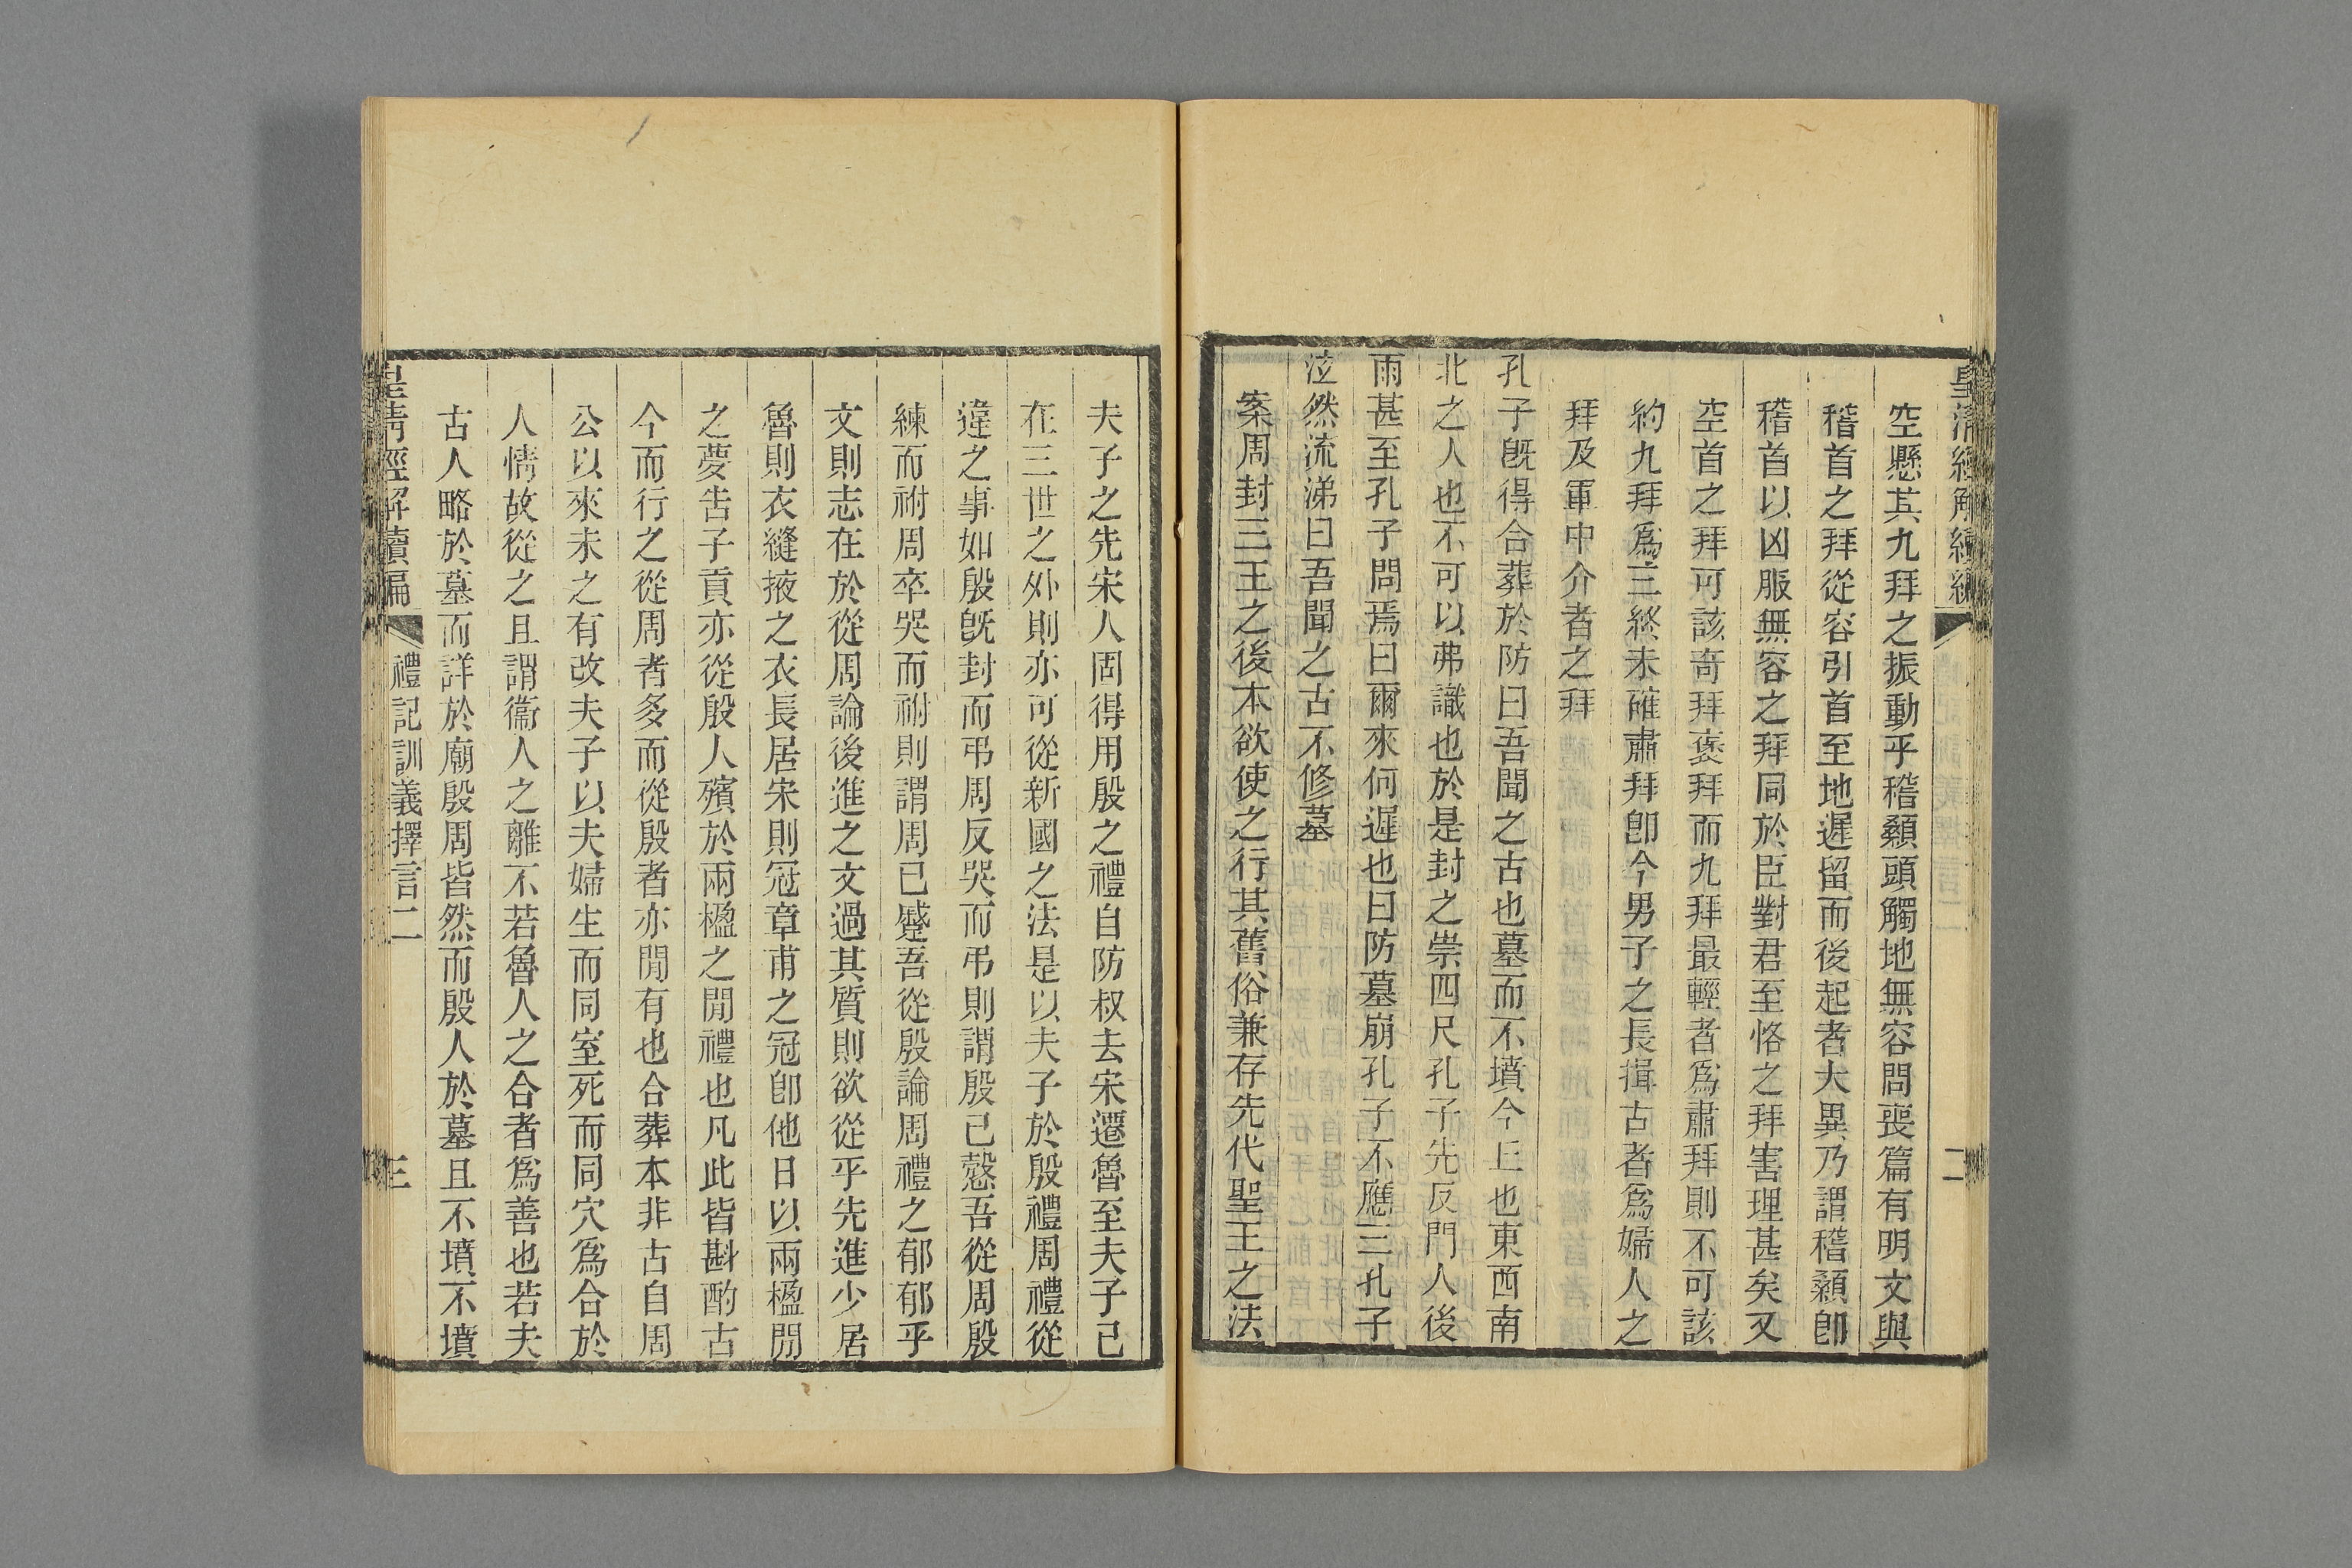 皇清經解續編
二
空懸其九拜之振動乎稽顙頭觸地無容問喪篇有明文與
稽首之拜從容引首至地遲留而後起者大異乃謂稽顙卽
稽首以凶服無容之拜同於臣對君至恪之拜害理甚矣又
空首之拜可該奇拜褒拜而九拜最輕者爲肅拜則不可該
約九拜爲三終未確肅拜卽今男子之長揖古者爲婦人之
拜及軍中介者之拜
孔子旣得合葬於防曰吾聞之古也墓而不墳今丘也東西南
北之人也不可以弗識也於是封之崇四尺孔子先反門人後
雨甚至孔子問焉曰爾來何遲也曰防墓崩孔子不應三孔子
泫然流涕曰吾聞之古不修墓
案周封三王之後本欲使之行其舊俗兼存先代聖王之法
夫子之先宋人固得用殷之禮自防叔去宋遷魯至夫子已
在三世之外則亦可從新國之法是以夫子於殷禮周禮從
違之事如殷旣封而弔周反哭而弔則謂殷已愨吾從周殷
練而祔周卒哭而祔則謂周已蹙吾從殷論周禮之郁郁乎
文則志在於從周論後進之文過其質則欲從乎先進少居
魯則衣縫掖之衣長居宋則冠章甫之冠卽他日以兩楹閒
之夢告子貢亦從殷人殯於兩楹之閒禮也凡此皆斟酌古
今而行之從周者多而從殷者亦閒有也合葬本非古自周
公以來未之有改夫子以夫婦生而同室死而同穴爲合於
人情故從之且謂衞人之離不若魯人之合者爲善也若夫
古人略於墓而詳於廟殷周皆然而殷人於墓且不墳不墳
皇清經解續編
禮記訓義擇言二
三